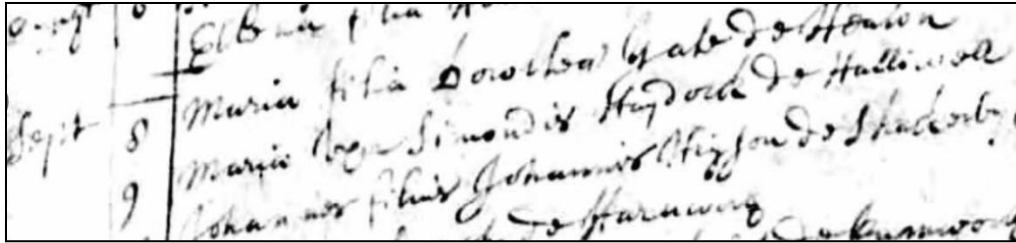 filia
Maria filia Dorothea Yate de Heaton
Sept 8 Maria vxr Simondis Haydock de Halliwell
9 Johannes filius Johannis Higson de Shakerley
de Harwing